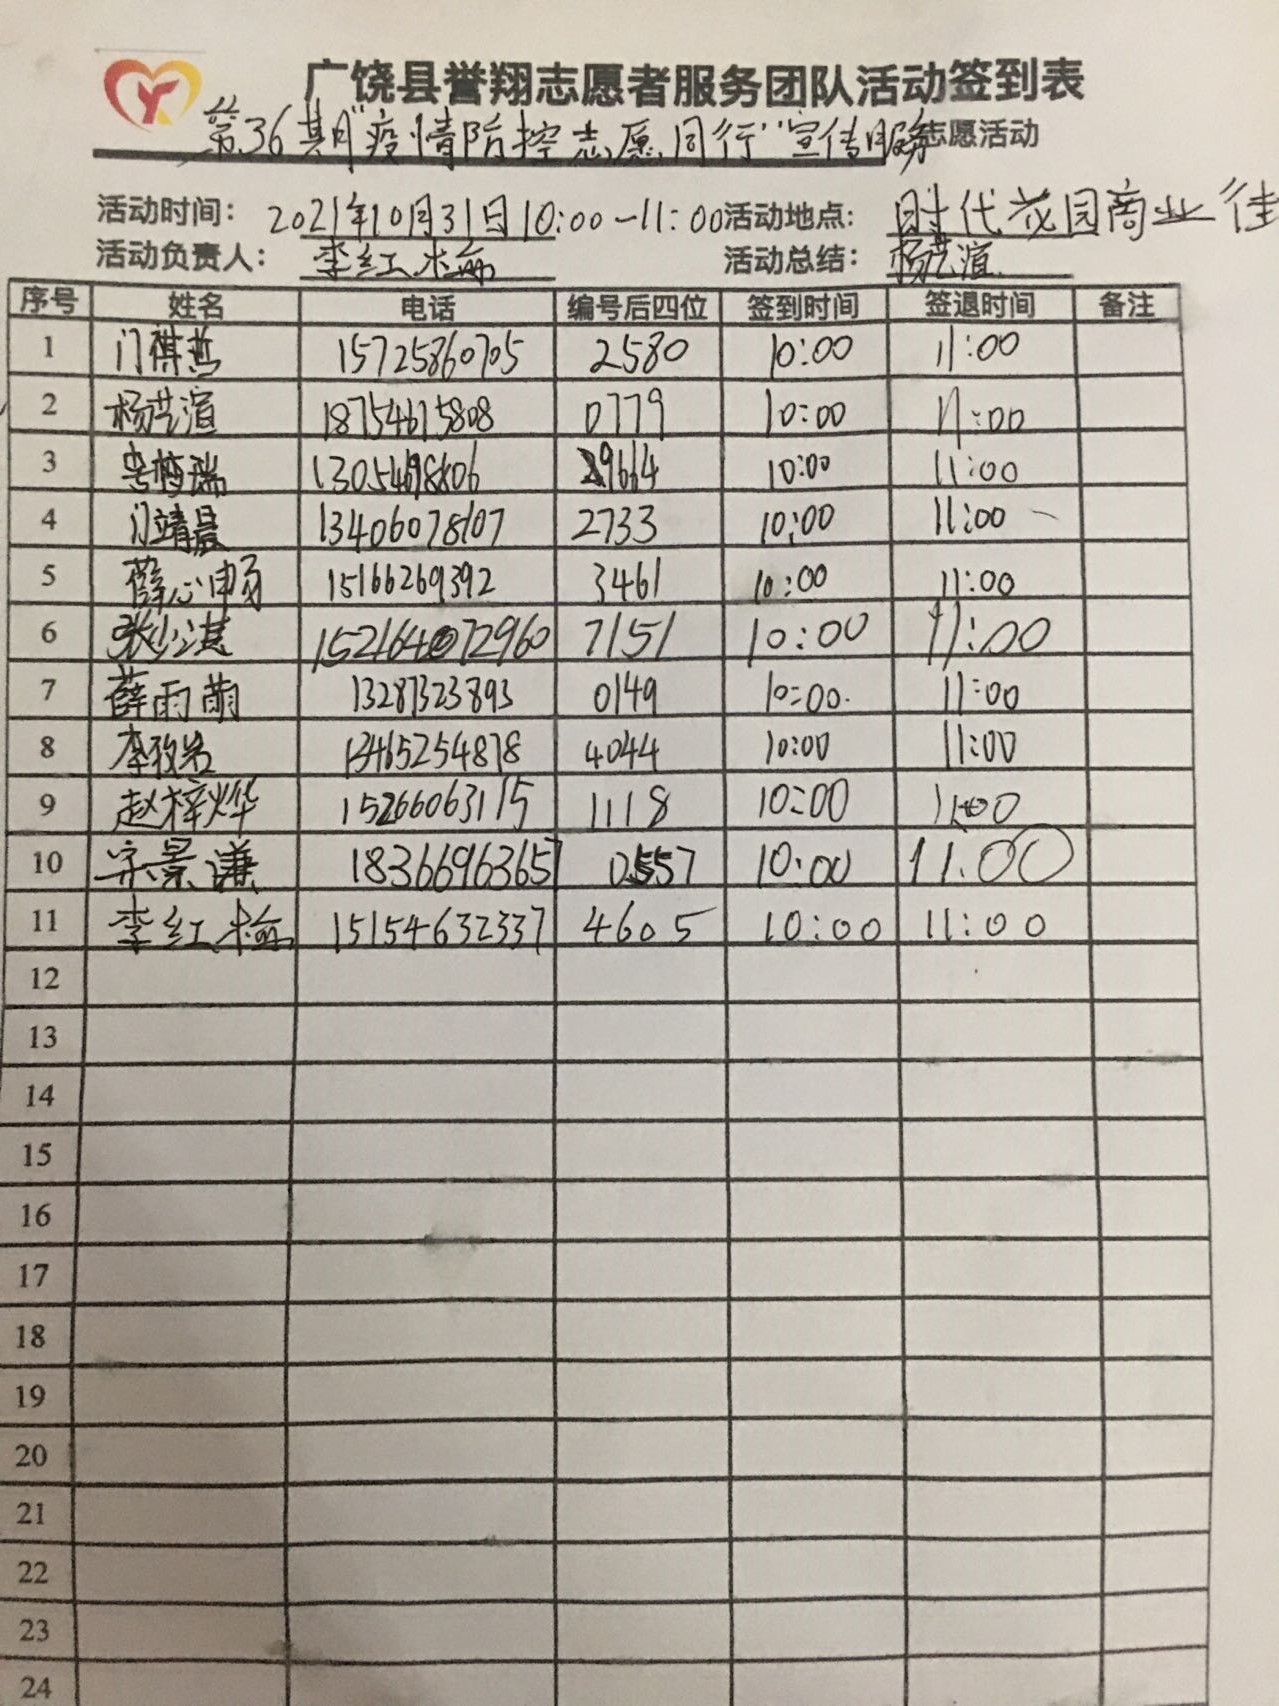 广饶县誉翔志愿者服务团队活动签到表
第36期"疫情防控志愿同行"宣传服务志愿活动
活动时间: 2021年10月31日10:00-11:00 活动地点: 时代花园商业街
活动负责人: 李红梅 活动总结: 杨艺渲
序号 姓名 电话 编号后四位 签到时间 签退时间 备注
1 门祺哲 15725860705 2580 10:00 11:00
2 杨艺渲 18754675808 0779 10:00 11:00
3 梦瑞 9664 10:00 11:00
4 门靖晨 13406078107 2733 10:00 11:00
5 薛心甜 15166269392 3461 10:00 11:00
6 张少淇 7151 10:00 11:00
7 薛雨萌 13287323893 0149 10:00 11:00
8 李牧岩 13465254878 4044 10:00 11:00
9 赵梓烨 15266063115 1118 10:00 11:00
10 宋景谦 18366963657 0557 10:00 11:00
11 李红梅 15154632337 4605 10:00 11:00
12
13
14
15
16
17
18
19
20
21
22
23
24